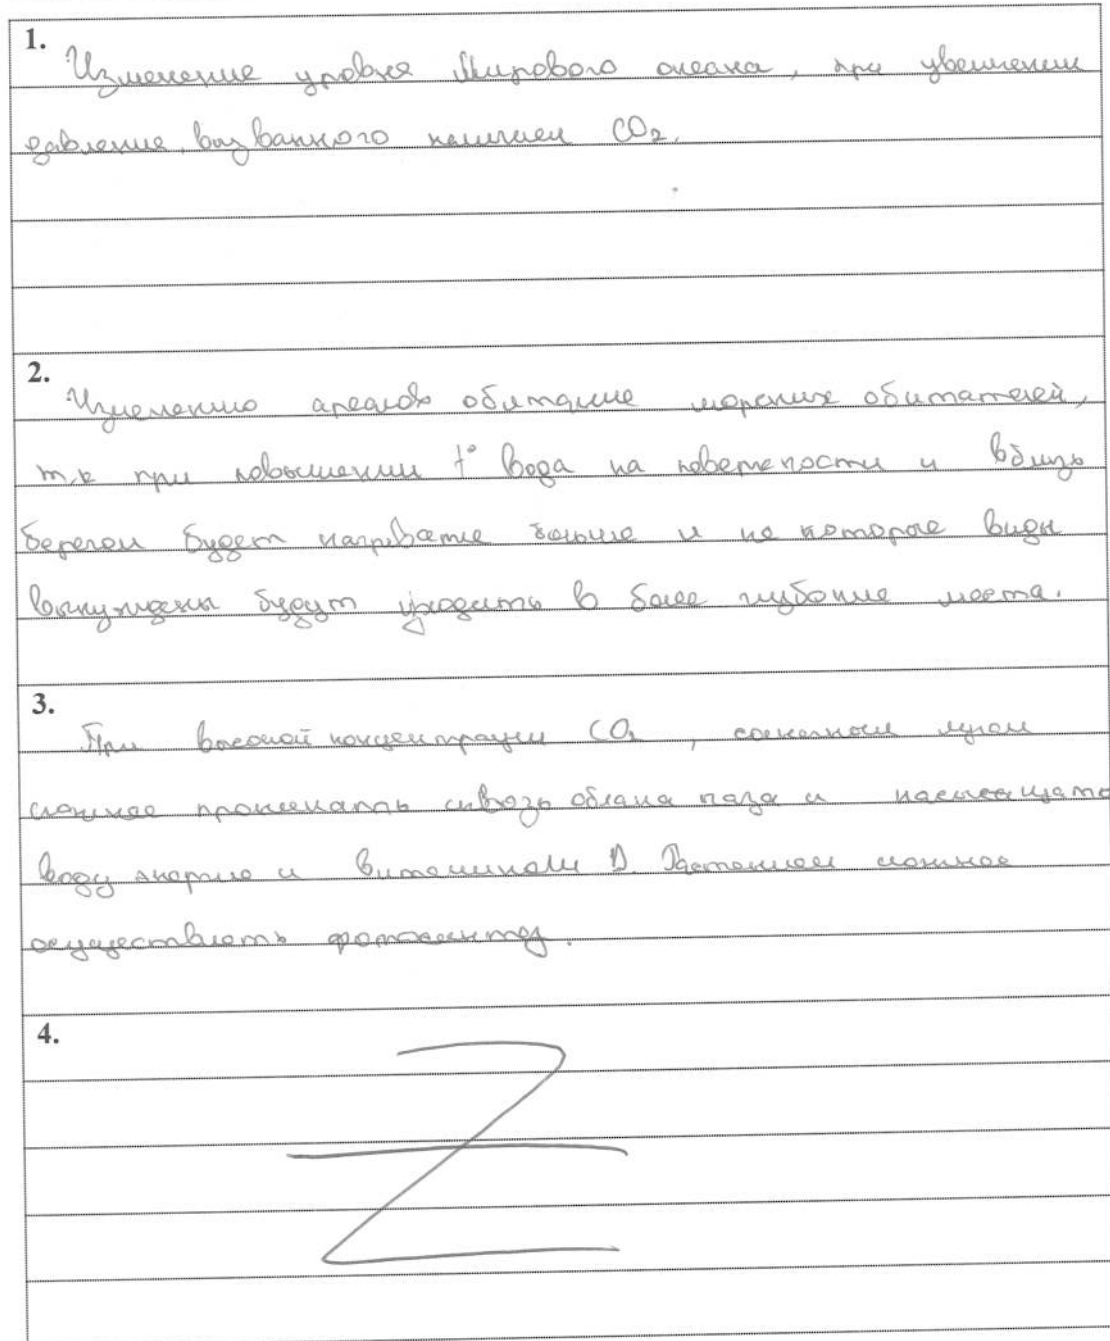 1.
Изменение уровня Мирового океана, при увеличении
давление, вызванного наличием CO2.
2.
Изменению ареалов обитание морских обитателей,
т.к при повышении t° вода на поверхности и вблизь
берегом будет нагревание больше и не которые виды
вынуждены будут уходить в более глубокие места.
3.
При высокой концентрации CO2, солнечным лучам
сложнее проникать сквозь облака газа и насыщать
воду энергию и витаминами D. Растениям сложнее
осуществлять фотосинтез.
4.
Z